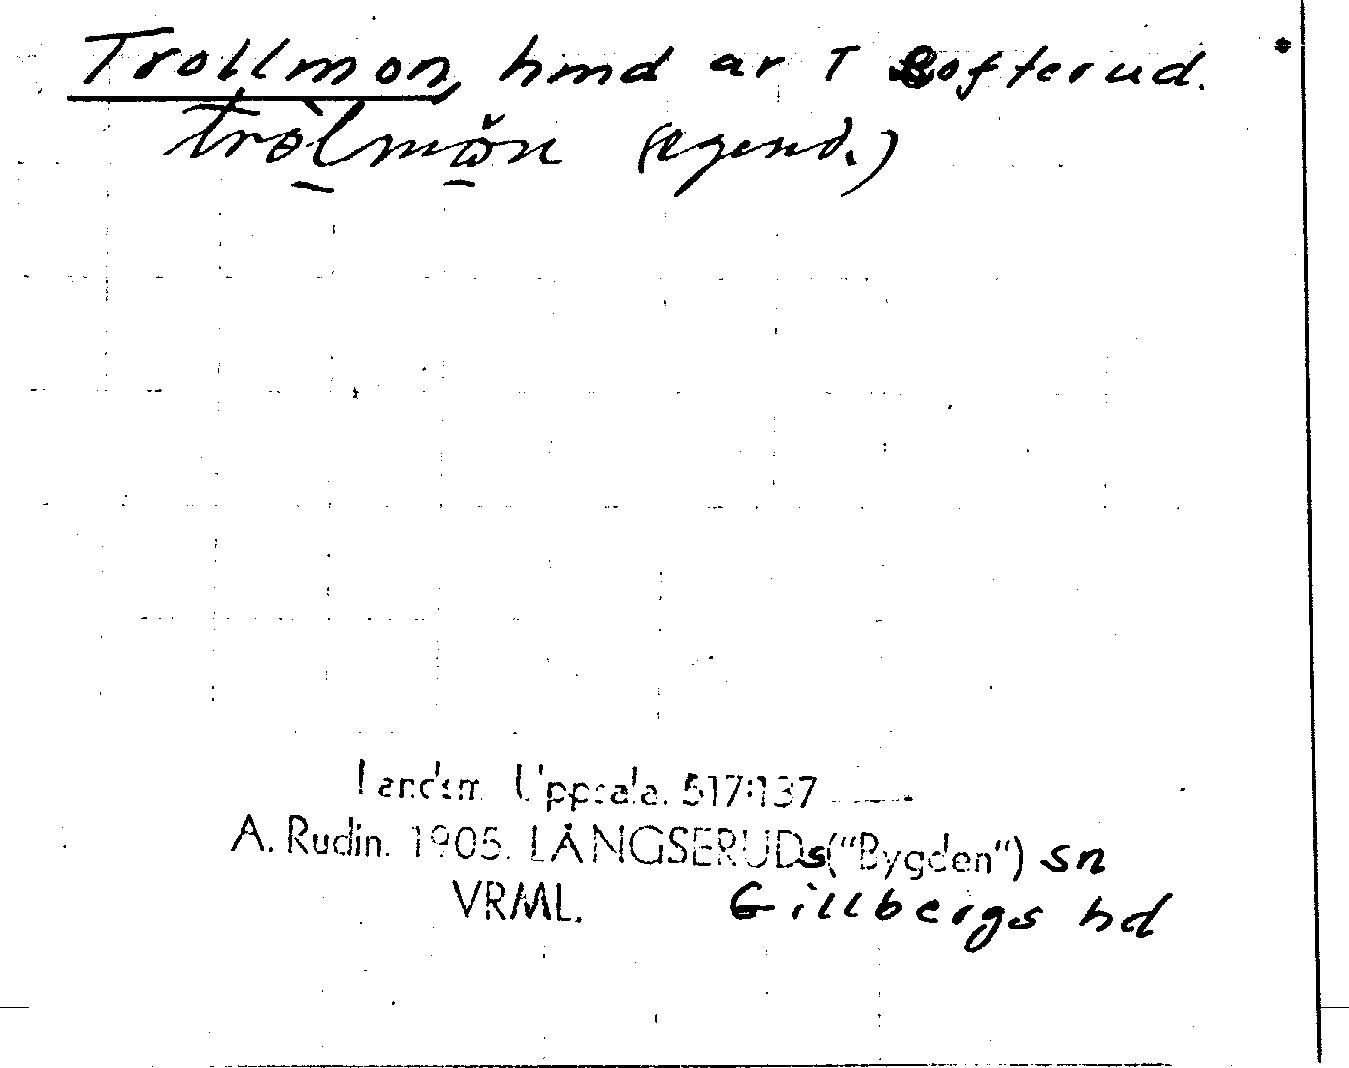 Trollmon, hmd ar T Softerud.
tròlmǒn (egend.)
Landsm. Uppsala. 517:137
A. Rudin. 1905. LÅNGSERUDs ("Bygden") sn
VRML. Gillbergs hd